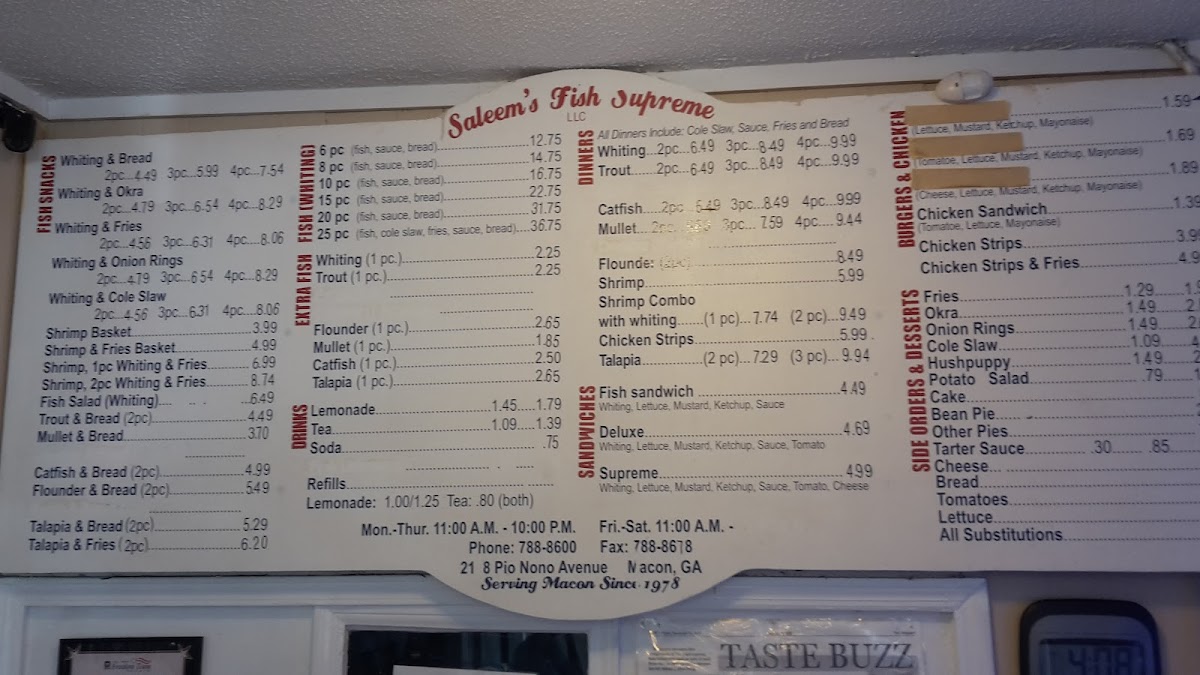 Saleem's Fish Supreme
LLC
FISH SNACKS
Whiting & Bread
2pc...4.49 3pc...5.99 4pc...7.54
Whiting & Okra
2pc...4.79 3pc...6.54 4pc...8.29
Whiting & Fries
2pc...4.56 3pc...6.31 4pc...8.06
Whiting & Onion Rings
2pc...4.79 3pc...6.54 4pc...8.29
Whiting & Cole Slaw
2pc...4.56 3pc...6.31 4pc...8.06
Shrimp Basket...3.99
Shrimp & Fries Basket...4.99
Shrimp, 1pc Whiting & Fries...6.99
Shrimp, 2pc Whiting & Fries...8.74
Fish Salad (Whiting)...6.49
Trout & Bread (2pc)...4.49
Mullet & Bread...3.70
Catfish & Bread (2pc)...4.99
Flounder & Bread (2pc)...5.49
Talapia & Bread (2pc)...5.29
Talapia & Fries (2pc)...6.20
FISH (WHITING)
6 pc (fish, sauce, bread)...12.75
8 pc (fish, sauce, bread)...14.75
10 pc (fish, sauce, bread)...16.75
15 pc (fish, sauce, bread)...22.75
20 pc (fish, sauce, bread)...31.75
25 pc (fish, cole slaw, fries, sauce, bread)...36.75
EXTRA FISH
Whiting (1 pc.)...2.25
Trout (1 pc.)...2.25
Flounder (1 pc.)...2.65
Mullet (1 pc.)...1.85
Catfish (1 pc.)...2.50
Talapia (1 pc.)...2.65
DRINKS
Lemonade...1.45...1.79
Tea...1.09...1.39
Soda....75
Refills
Lemonade: 1.00/1.25 Tea: .80 (both)
DINNERS
All Dinners Include: Cole Slaw, Sauce, Fries and Bread
Whiting...2pc...6.49 3pc...8.49 4pc...9.99
Trout...2pc...6.49 3pc...8.49 4pc...9.99
Catfish...2pc...6.49 3pc...8.49 4pc...9.99
Mullet...2pc... 3pc... 7.59 4pc...9.44
(2pc)...8.49
Shrimp...5.99
Shrimp Combo
with whiting...(1 pc)...7.74 (2 pc)...9.49
Chicken Strips...5.99
Talapia...(2 pc)...7.29 (3 pc)...9.94
SANDWICHES
Fish sandwich...4.49
Whiting, Lettuce, Mustard, Ketchup, Sauce
Deluxe...4.69
Whiting, Lettuce, Mustard, Ketchup, Sauce, Tomato
Supreme...4.99
Whiting, Lettuce, Mustard, Ketchup, Sauce, Tomato, Cheese
BURGERS & CHICKEN
1.59
(Lettuce, Mustard, Ketchup, Mayonaise)
1.69
(Tomatoe, Lettuce, Mustard, Ketchup, Mayonaise)
1.89
(Cheese, Lettuce, Mustard, Ketchup, Mayonaise)
Chicken Sandwich...1.39
(Tomatoe, Lettuce, Mayonaise)
Chicken Strips...3.9
Chicken Strips & Fries...4.9
SIDE ORDERS & DESSERTS
Fries...1.29
Okra...1.49
Onion Rings...1.49
Cole Slaw...1.09
Hushpuppy...1.49
Potato Salad....79
Cake
Bean Pie
Other Pies
Tarter Sauce....30....85
Cheese
Bread
Tomatoes
Lettuce
All Substitutions
Mon.-Thur. 11:00 A.M. - 10:00 P.M. Fri.-Sat. 11:00 A.M. -
Phone: 788-8600 Fax: 788-8678
21 8 Pio Nono Avenue Macon, GA
Serving Macon Since 1978
TASTE BUZZ
4:08